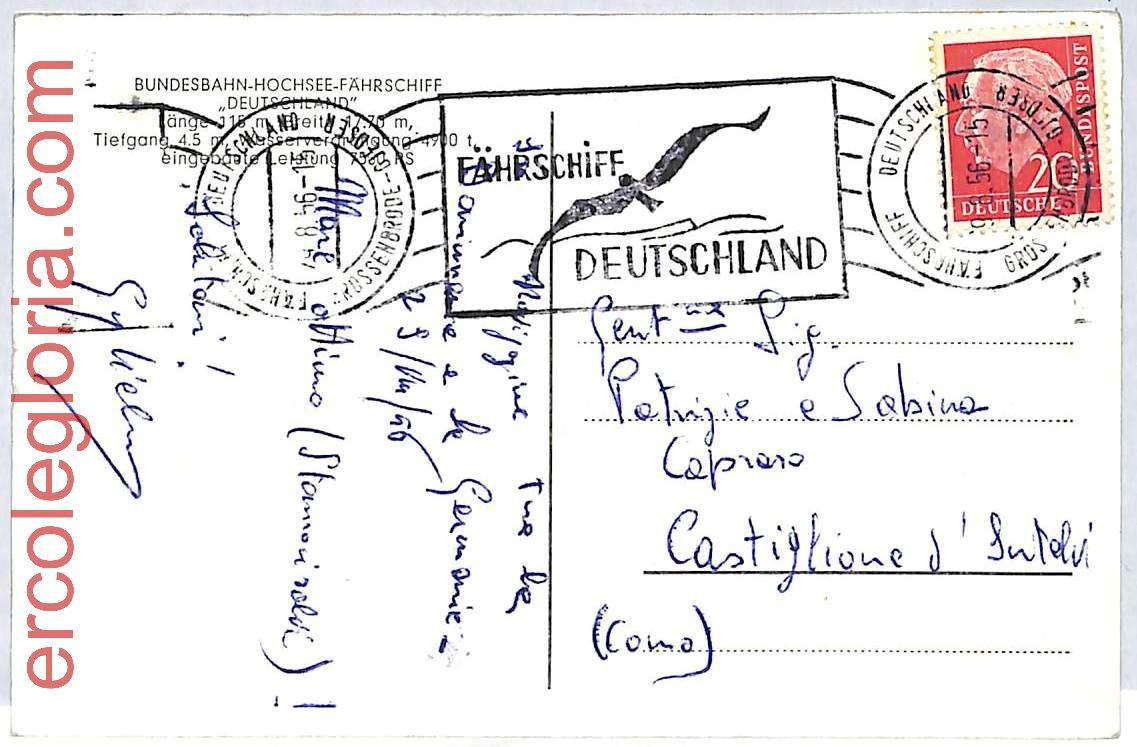 ercolegloria.com
BUNDESBAHN-HOCHSEE-FÄHRSCHIFF
„DEUTSCHLAND“
Länge 115 m, Breite 17,70 m,
Tiefgang 4,5 m, Wasserverdrängung 4900 t,
eingebaute Leistung PS
FÄHRSCHIFF
DEUTSCHLAND
DEUTSCHLAND
FÄHRSCHIFF
GROSSENBRODE-GEDSER
DEUTSCHLAND
FÄHRSCHIFF
GROSSENBRODE-GEDSER
20
DEUTSCHE
BUNDESPOST
Navigine tra la
Danimarca e la Germania
29/VIII/56
Mare ottimo (Stamani solo) !
Saluti !
Gent.me Sig.
Patrizie e Sabina
Capraro
Castiglione d'Intelvi
(Como)